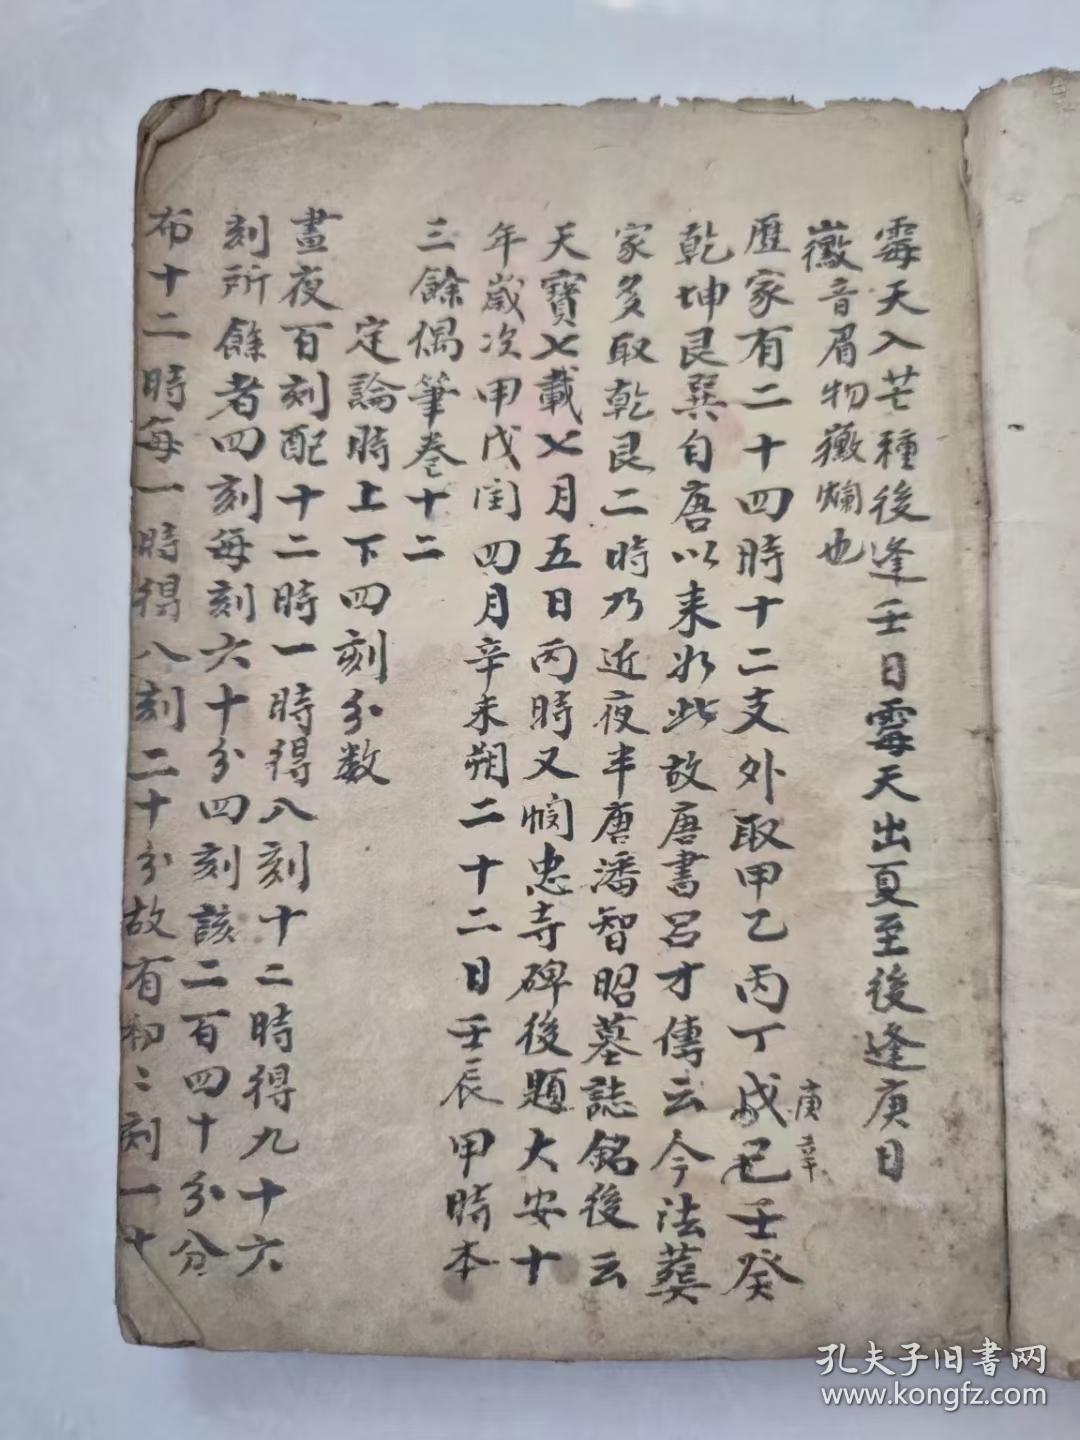 霉天入芒種後逢壬日霉天出夏至後逢庚日
黴音眉物黴爛也
歷家有二十四時十二支外取甲乙丙丁戊己壬癸
庚辛
乾坤艮巽自唐以来如此故唐書呂才傳云今法葬
家多取乾艮二時乃近夜半唐潘智昭墓誌銘後云
天寶七載七月五日丙時又憫忠寺碑後題大安十
年歲次甲戌閏四月辛未朔二十二日壬辰甲時本
三餘偶筆卷十二
定論時上下四刻分数
晝夜百刻配十二時一時得八刻十二時得九十六
刻所餘者四刻每刻六十分四刻該二百四十分分
布十二時每一時得八刻二十分故有初二刻一十
孔夫子旧書网
www.kongfz.com